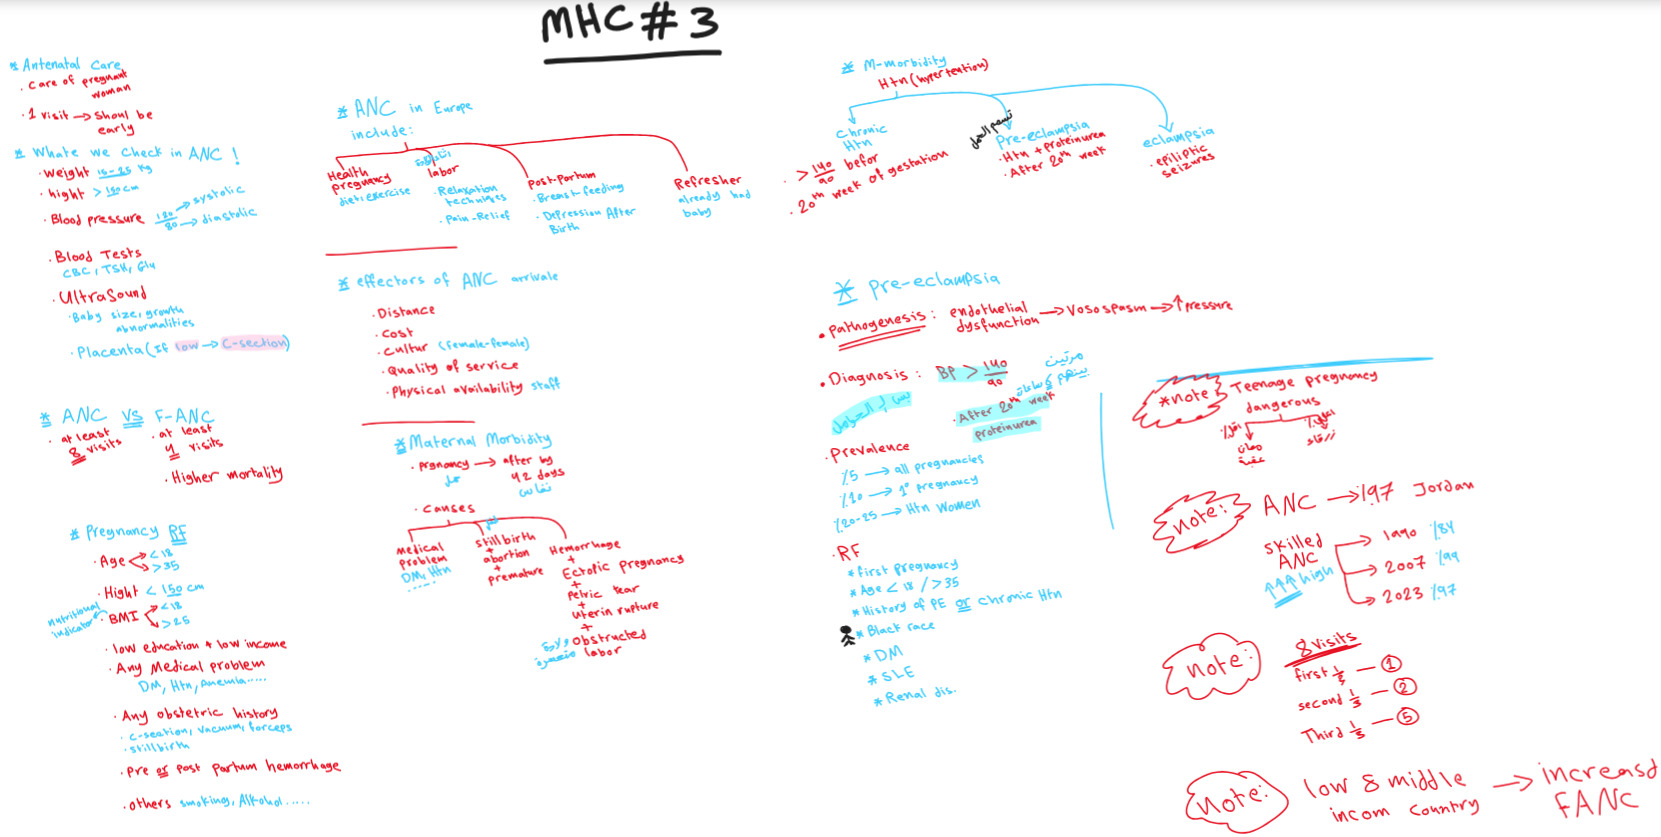 MHC # 3
* Antenatal Care
. Care of pregnant
woman
. 1 visit → Shoul be
early
* Whate we check in ANC !
. weight 15-25 kg
. hight > 150 cm
. Blood pressure 120/80 → systolic
→ diastolic
. Blood Tests
CBC, TSH, Glu
. UltraSound
. Baby size, growth
abnormalities
. Placenta (if low → C-section)
* ANC VS F-ANC
. at least
8 visits
. at least
4 visits
. Higher mortality
* Pregnancy RF
. Age < 18
> 35
. Hight < 150 cm
nutritional
indicator
. BMI < 18
> 25
. low education + low income
. Any Medical problem
DM, Htn, Anemia.....
. Any obstetric history
. C-section, vacuum, forceps
. stillbirth
. Pre or post partum hemorrhage
. others smoking, Alkohol.....
* ANC in Europe
include:
Health
pregnancy
diet, exercise
labor
. Relaxation
techniques
. Pain-Relief
Post-Partum
. Breast-feeding
. Depression After
Birth
Refresher
already had
baby
* effectors of ANC arrivale
. Distance
. Cost
. Cultur (female-female)
. Quality of service
. Physical availability staff
* Maternal Morbidity
. prgnancy → after by
حمل
42 days
نفاس
. Causes
Medical
problem
DM, Htn
.....
stillbirth
+
abortion
+
premature
Hemorrhage
+
Ectopic Pregnancs
+
Pelvic tear
+
uterin rupture
+
obstructed
labor
ولادة
متعسرة
* M-morbidity
Htn (hypertention)
Chronic
Htn
. > 140/90 befor
. 20th week of gestation
تسمم الحمل
Pre-eclampsia
. Htn + proteinurea
. After 20th week
eclampsia
. epiliptic
seizures
* Pre-eclampsia
. Pathogenesis : endothelial
dysfunction → Vosospasm → ↑ pressure
. Diagnosis : BP > 140/90
مرتين
بينهم 4 ساعات
. After 20th week
proteinurea
. Prevalence
%5 → all pregnancies
%10 → 1° pregnancy
%20-25 → Htn Women
. RF
* first pregnancy
* Age < 18 / > 35
* History of PE or chronic Htn
* Black race
* DM
* SLE
* Renal dis.
*note Teenage pregnancy
dangerous
note: ANC → %97 Jordan
skilled
ANC
↑↑↑ high
→ 1990 %84
→ 2007 %99
→ 2023 %97
note: 8 visits
first 1/3 — 1
second 1/3 — 2
Third 1/3 — 5
note: low & middle
incom country → increasd
FANC